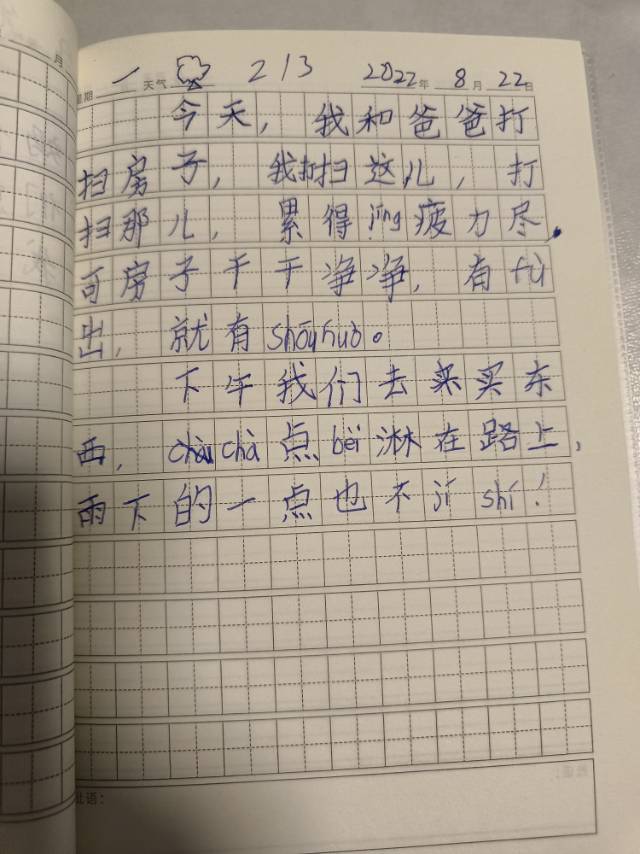 月
星期 一 天气 213 2022年 8月 22日
今天，我和爸爸打
扫房子，我打扫这儿，打
扫那儿，累得jīng疲力尽，
可房子干干净净，有fù
出，就有shōuhuò。
下午我们去来买东
西，chàchà点bèi淋在路上，
雨下的一点也不jí shí！
批语：